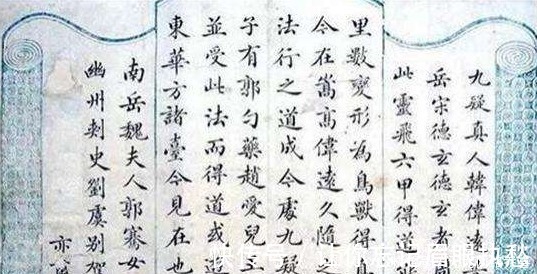 九疑真人韓偉遠
岳宋德玄德玄者周
此靈飛六甲得道
里數變形為鳥獸得真
今在嵩高偉遠久隨之
法行之道成今處九疑
子有郭勺藥趙愛兒王
並受此法而得道或遊
東華方諸臺今見在也
南岳魏夫人郭騫女
幽州刺史劉虞別駕
亦